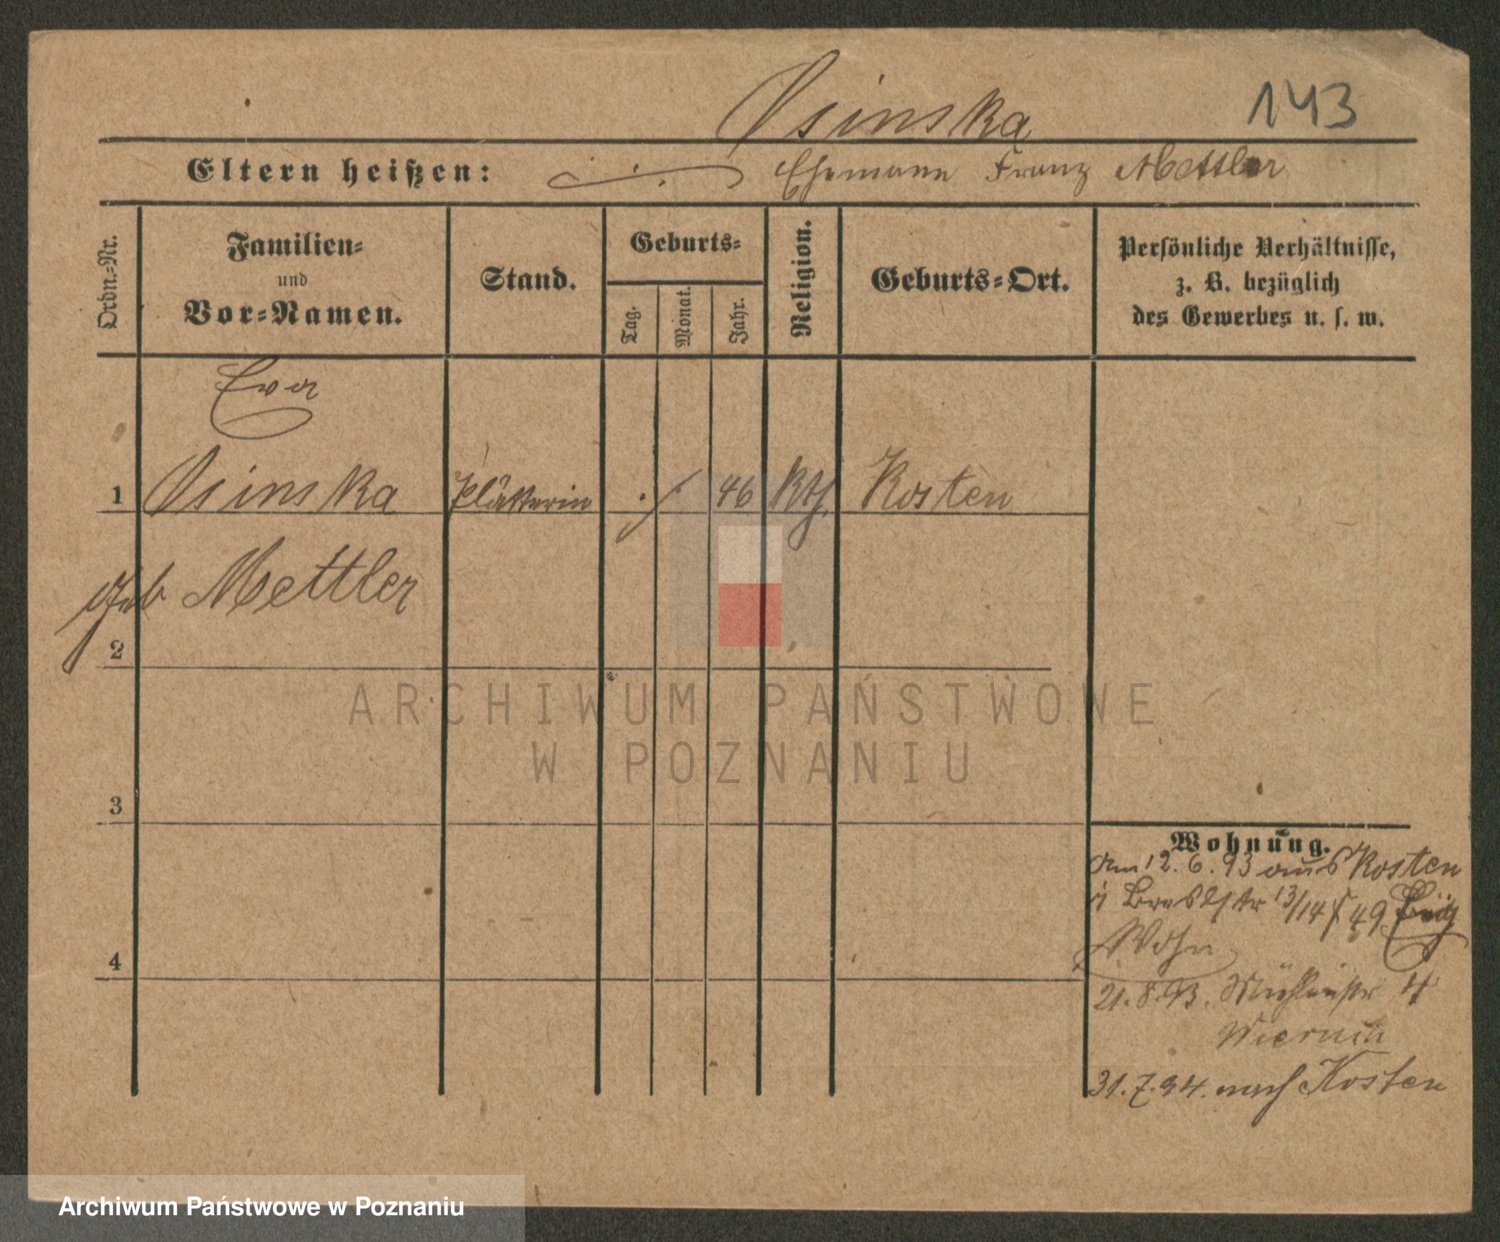 Osinska
143
Eltern heißen: Ehemann Franz Mettler
Ordn.-Nr.
Familien-
und
Vor-Namen.
Stand.
Geburts-
Tag.
Monat.
Jahr.
Religion.
Geburts-Ort.
Persönliche Verhältnisse,
z. B. bezüglich
des Gewerbes u. s. w.
Eva
1 Osinska Plätterin ./. 46 Kth. Kosten
geb Mettler
2
ARCHIWUM PAŃSTWOWE
W POZNANIU
3
4
Wohnung.
Am 12.6.93 aus Kosten
Breslstr 13/14 49
Wohn
21.8.93. Mühlenstr 4
31.7.94. nach Kosten
Archiwum Państwowe w Poznaniu